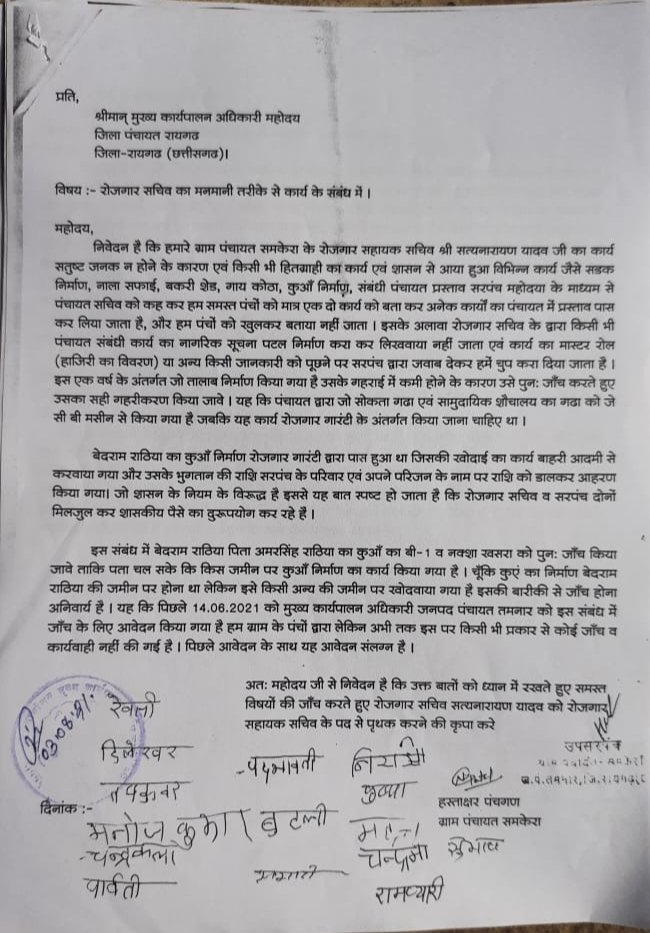 प्रति,
श्रीमान् मुख्य कार्यपालन अधिकारी महोदय
जिला पंचायत रायगढ
जिला-रायगढ (छत्तीसगढ)।
विषय :- रोजगार सचिव का मनमानी तरीके से कार्य के संबंध में ।
महोदय,
निवेदन है कि हमारे ग्राम पंचायत समकेरा के रोजगार सहायक सचिव श्री सत्यनारायण यादव जी का कार्य
सतुष्ट जनक न होने के कारण एवं किसी भी हितग्राही का कार्य एवं शासन से आया हुआ विभिन्न कार्य जैसे सडक
निर्माण, नाला सफाई, बकरी शेड, गाय कोठा, कुआँ निर्माण, संबंधी पंचायत प्रस्ताव सरपंच महोदया के माध्यम से
पंचायत सचिव को कह कर हम समस्त पंचों को मात्र एक दो कार्य को बता कर अनेक कार्यों का पंचायत में प्रस्ताव पास
कर लिया जाता है, और हम पंचों को खुलकर बताया नहीं जाता । इसके अलावा रोजगार सचिव के द्वारा किसी भी
पंचायत संबंधी कार्य का नागरिक सूचना पटल निर्माण करा कर लिखवाया नहीं जाता एवं कार्य का मास्टर रोल
(हाजिरी का विवरण) या अन्य किसी जानकारी को पूछने पर सरपंच द्वारा जवाब देकर हमें चुप करा दिया जाता है ।
इस एक वर्ष के अंतर्गत जो तालाब निर्माण किया गया है उसके गहराई में कमी होने के कारण उसे पुन: जाँच करते हुए
उसका सही गहरीकरण किया जावे । यह कि पंचायत द्वारा जो सोकता गढा एवं सामुदायिक शौचालय का गढा को जे
सी बी मसीन से किया गया है जबकि यह कार्य रोजगार गारंटी के अंतर्गत किया जाना चाहिए था ।
बेदराम राठिया का कुआँ निर्माण रोजगार गारंटी द्वारा पास हुआ था जिसकी खोदाई का कार्य बाहरी आदमी से
करवाया गया और उसके भुगतान की राशि सरपंच के परिवार एवं अपने परिजन के नाम पर राशि को डालकर आहरण
किया गया। जो शासन के नियम के विरूद्ध है इससे यह बात स्पष्ट हो जाता है कि रोजगार सचिव व सरपंच दोनों
मिलजुल कर शासकीय पैसे का दुरूपयोग कर रहे है ।
इस संबंध में बेदराम राठिया पिता अमरसिंह राठिया का कुआँ का बी-1 व नक्शा खसरा को पुन: जाँच किया
जावे ताकि पता चल सके कि किस जमीन पर कुआँ निर्माण का कार्य किया गया है । चूँकि कुएं का निर्माण बेदराम
राठिया की जमीन पर होना था लेकिन इसे किसी अन्य की जमीन पर खोदवाया गया है इसकी बारीकी से जाँच होना
अनिवार्य है । यह कि पिछले 14.06.2021 को मुख्य कार्यपालन अधिकारी जनपद पंचायत तमनार को इस संबंध में
जाँच के लिए आवेदन किया गया है हम ग्राम के पंचों द्वारा लेकिन अभी तक इस पर किसी भी प्रकार से कोई जाँच व
कार्यवाही नहीं की गई है । पिछले आवेदन के साथ यह आवेदन संलग्न है ।
अत: महोदय जी से निवेदन है कि उक्त बातों को ध्यान में रखते हुए समस्त
विषयों की जाँच करते हुए रोजगार सचिव सत्यनारायण यादव को रोजगार
सहायक सचिव के पद से पृथक करने की कृपा करे
उपसरपंच
दिनांक :-
हस्ताक्षर पंचगण
ग्राम पंचायत समकेरा
मनोज कुमार
चन्द्रकला
पार्वती
रामप्यारी